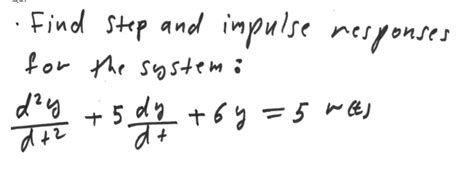 · Find step and impulse responses
for the system:
d²y/dt² + 5 dy/dt + 6y = 5 r(t)